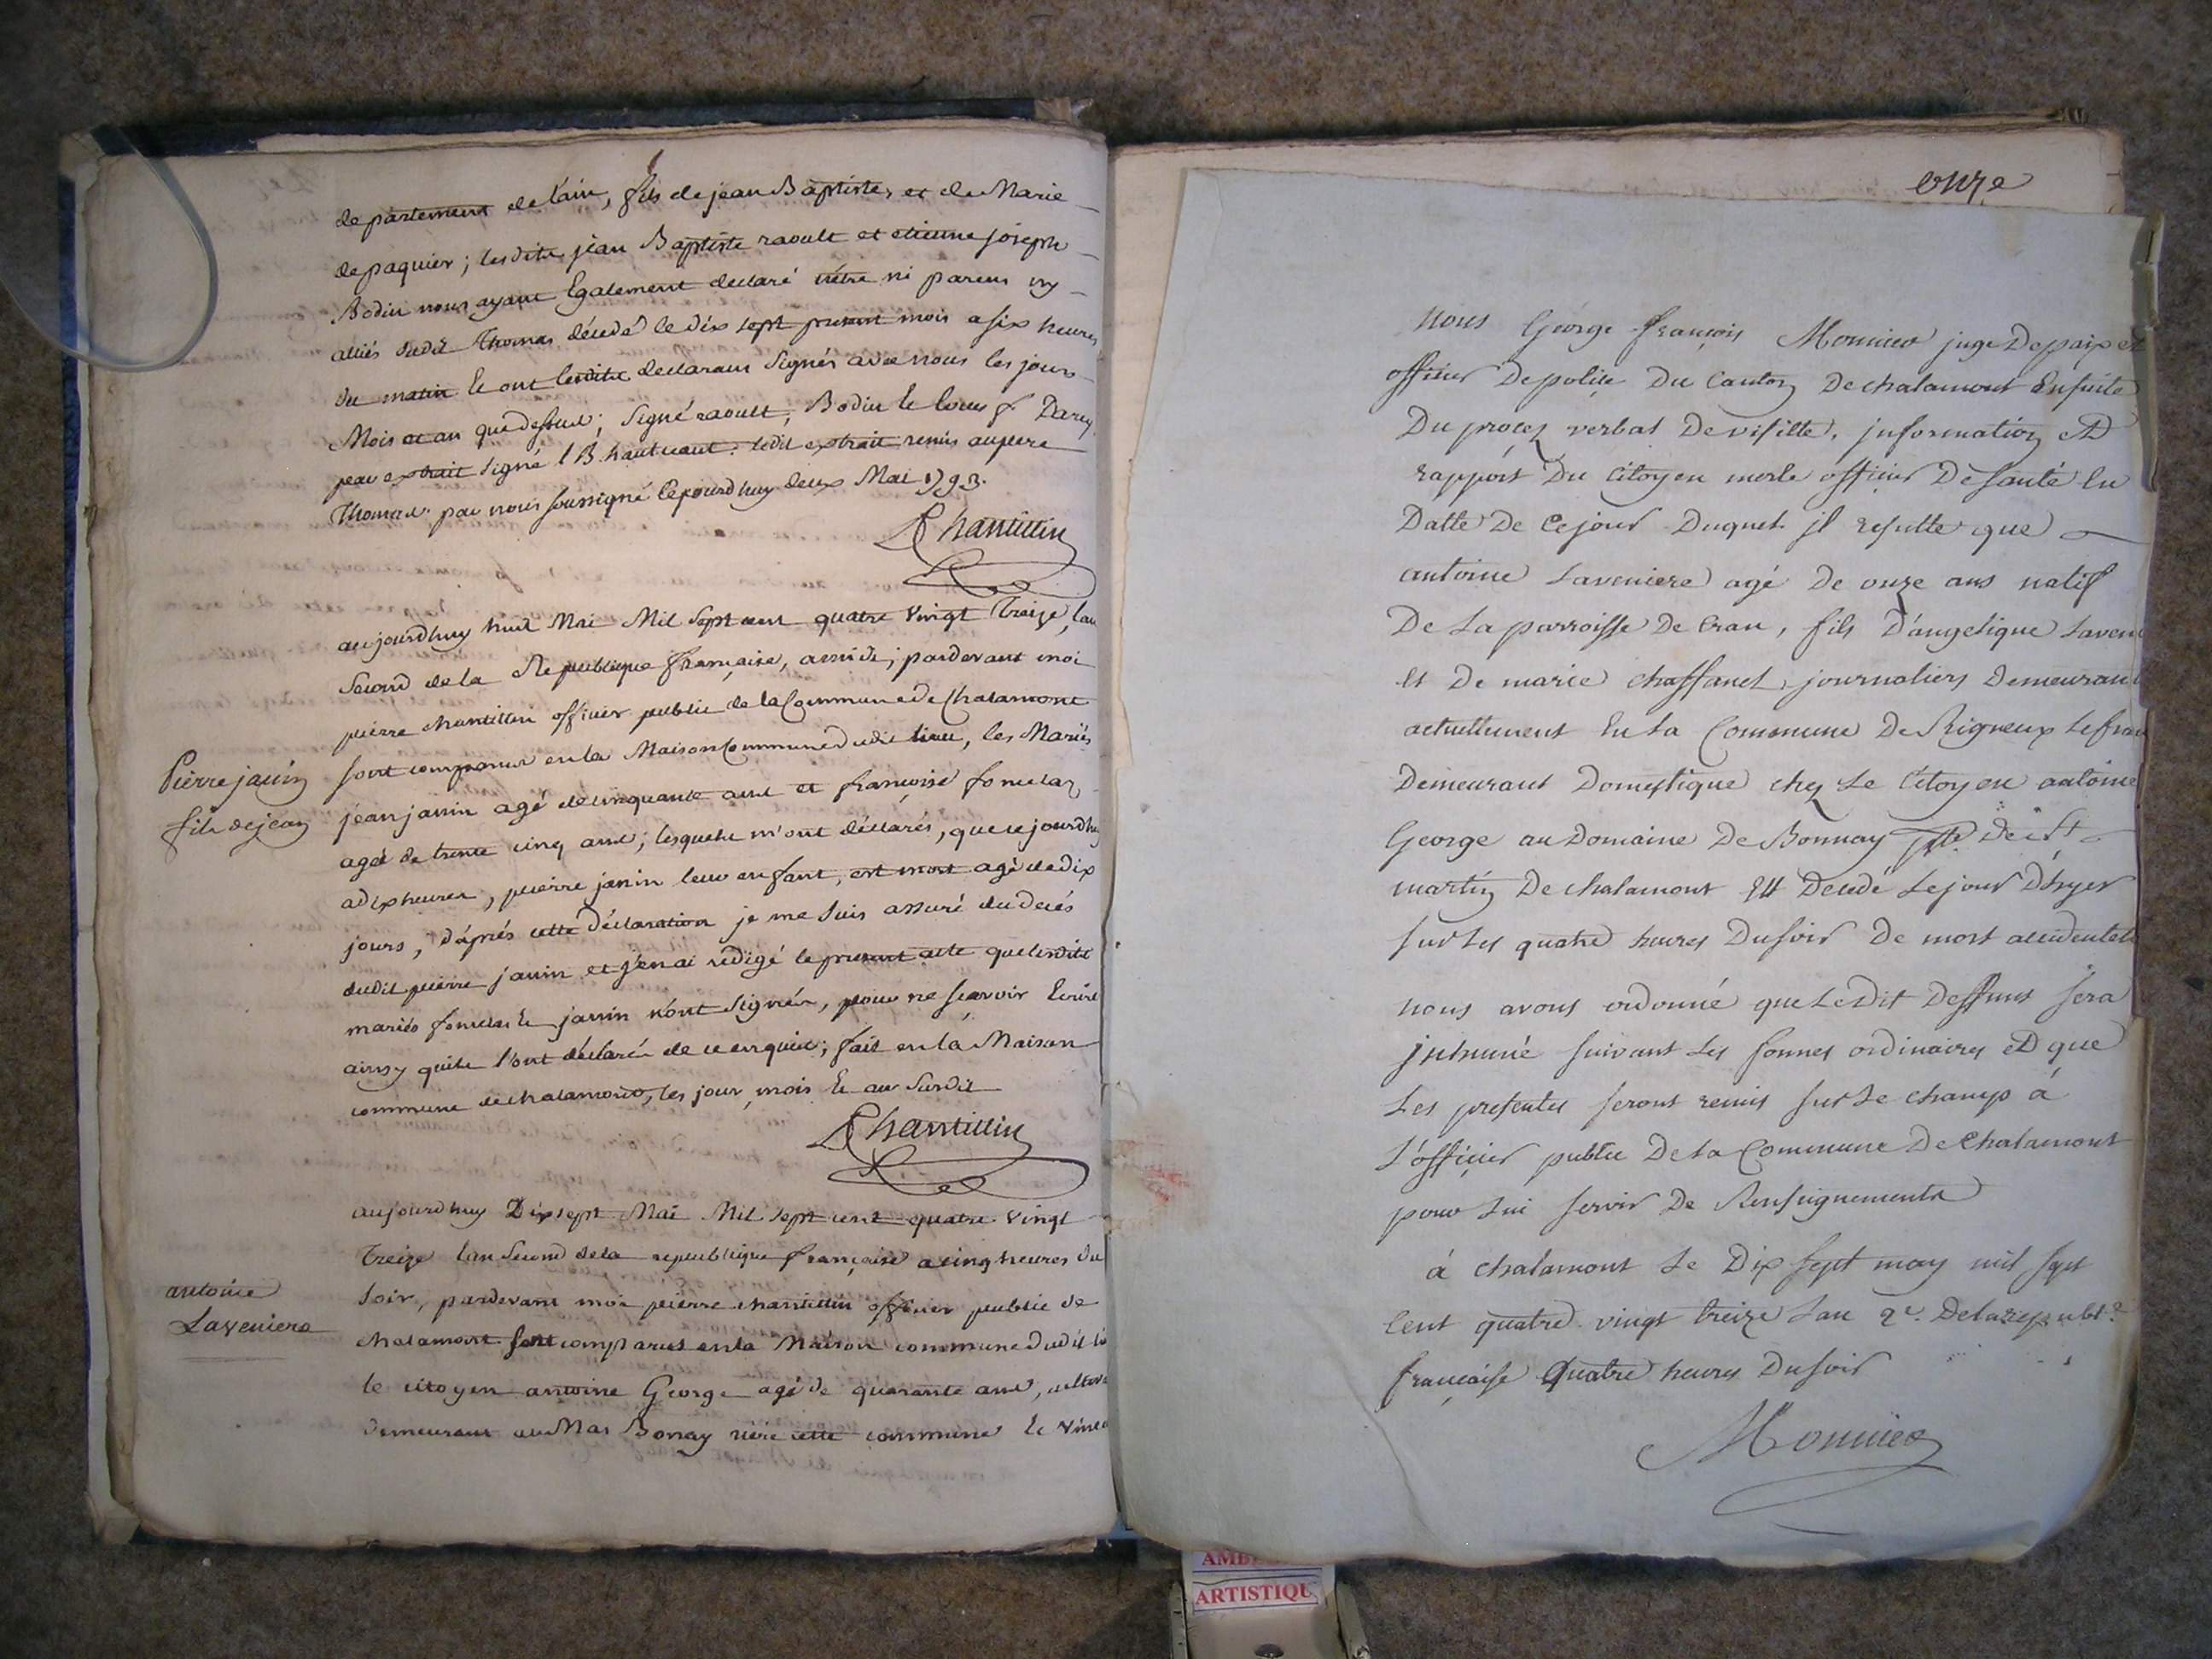 departement de l'ain, fils de jean Baptiste, et de Marie
depaquier; lesdits jean Baptiste raoult et etienne joseph
Bodin nous ayant Egalement declaré nétre ni parens ny
alliés dudit Thomas décédé le dix sept present mois a six heures
du matin Et ont lesdits declarans Signés avec nous les jour
Mois et an que dessus; Signé raoult, Bodin Et
par extrait signé l B hautvant. ledit extrait remis au pere
Thomas par nous soussigné Cejourdhuy deux Mai 1793.
Chantillin
aujourdhuy huit Mai Mil Sept cent quatre Vingt Treize, lan
Second de la Republique française, a midi; pardevant moi
pierre chantillin officier public de la Commune de Chalamont
sont comparus en la Maison Commune dudit lieu, les Mariés
Pierre janin
fils de jean
jean janin agé de cinquante ans et françoise
agée de trente cinq ans; lesquels m'ont déclarés, que cejourdhuy
a dix heures, pierre janin leur enfant, est mort agé de dix
jours, d'áprés cette déclaration je me suis assuré du decés
dudit pierre janin et j'en ai rédigé le present acte que lesdits
mariés janin n'ont Signés, pour ne sçavoir Ecrire
ainsy quils l'ont déclarés de ce enquis; fait en la Maison
commune de chalamont, les jour, mois Et an Susdit
Chantillin
aujourdhuy Dixsept Mai Mil Sept cent quatre Vingt
Treize lan Second de la republique française a cinq heures du
antoine
Laveniere
soir, pardevant moi pierre chantillin officier public de
chalamont sont comparus en la Maison commune dudit
le citoyen antoine George agé de quarante ans,
demeurant au Mas Bonay riére cette commune Et
onze
nous George françois Monnier juge De paix et
officier De police Du Canton De chalamont Ensuite
Du procez verbal De visitte, information Et
rapport Du Citoyen merle officier De santé En
Datte De Cejour Duquel jl resulte que
antoine Laveniere agé de onze ans natif
De La parroisse De Cran, fils D'angelique
Et De marie chaffanel, journaliers Demeurant
actuellement En La Commune De Rigneux Lefran
Demeurant Domestique chez Le Citoyen antoine
George au Domaine De Bonnay De St
martin De chalamont Est Decedé Le jour D'hyer
sur Les quatre heures Du soir De mort accidentele
nous avons ordonné que Ledit Deffunt sera
jnhumé suivant Les formes ordinaires Et que
Les presentes seront remis sur Le champ á
L'officier public De La Commune De Chalamont
pour Lui servir De Renseignements
á chalamont Le Dix sept may mil sept
Cent quatre vingt treize Lan 2e. De la republ.e
française Quatre heures Du soir
Monnier
ARTISTIQU